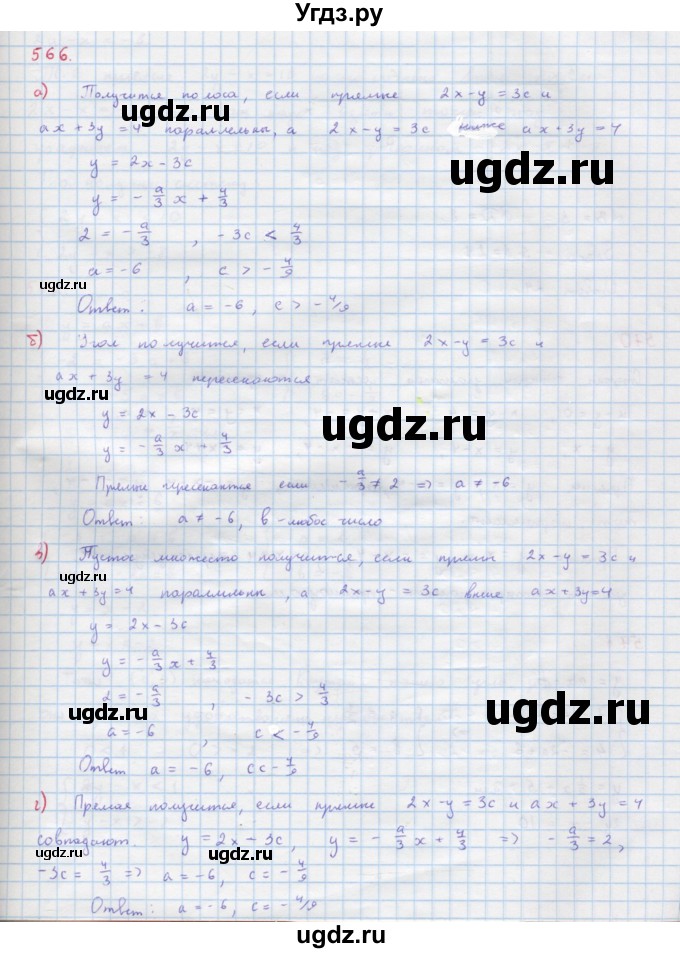 Угдз.ру
566.
а) Получится полоса, если прямые 2x-y=3c и
ax+3y=4 параллельны, а 2x-y=3c ниже ax+3y=4
y=2x-3c
y=-a/3 x+4/3
2=-a/3, -3c<4/3
a=-6, c>-4/9
Ответ: a=-6, c>-4/9
б) Угол получится, если прямые 2x-y=3c и
ax+3y=4 пересекаются
y=2x-3c
y=-a/3 x+4/3
Прямые пересекаются если -a/3≠2 => a≠-6
Ответ: a≠-6, в-любое число
в) Пустое множесто получится, если прямы 2x-y=3c и
ax+3y=4 параллельны, а 2x-y=3c выше ax+3y=4
y=2x-3c
y=-a/3 x+4/3
2=-a/3, -3c>4/3
a=-6, c<-4/9
Ответ a=-6, c<-4/9
г) Прямая получится, если прямые 2x-y=3c и ax+3y=4
совпадают. y=2x-3c, y=-a/3 x+4/3 => -a/3=2,
-3c=4/3 => a=-6, c=-4/9
Ответ: a=-6, c=-4/9
ugdz.ru
ugdz.ru
ugdz.ru
ugdz.ru
ugdz.ru
ugdz.ru
ugdz.ru
ugdz.ru
ugdz.ru
ugdz.ru